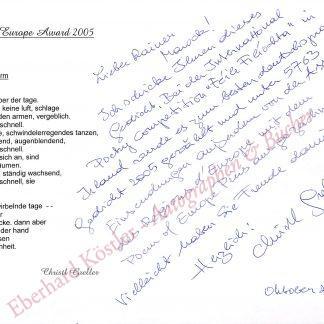 Europe Award 2005
rm
ber der tage.
keine luft, schlage
den armen, vergeblich.
schnell.
e, schwindelerregendes tanzen,
end, augenblendend,
schnell.
sich an, sind
äumen.
ständig wachsend,
schnell, sie
virbelnde tage --
der
cke. dann aber
der hand
sen
enheit.
Christl Greller
Lieber Rainer
Ich schicke Ihnen dieses
Gedicht. Bei der International
Poetry Competition "Féile Filíochta" in
Irland wurde es zum besten deutschspr
Gedicht 2005 gewählt und unter 5763
Einsendungen außerdem von der
Poem of Europe
Vielleicht haben Sie Freude damit
Herzlich!
Christl
Oktober
Eberhard Köstler - Autographen & Bücher